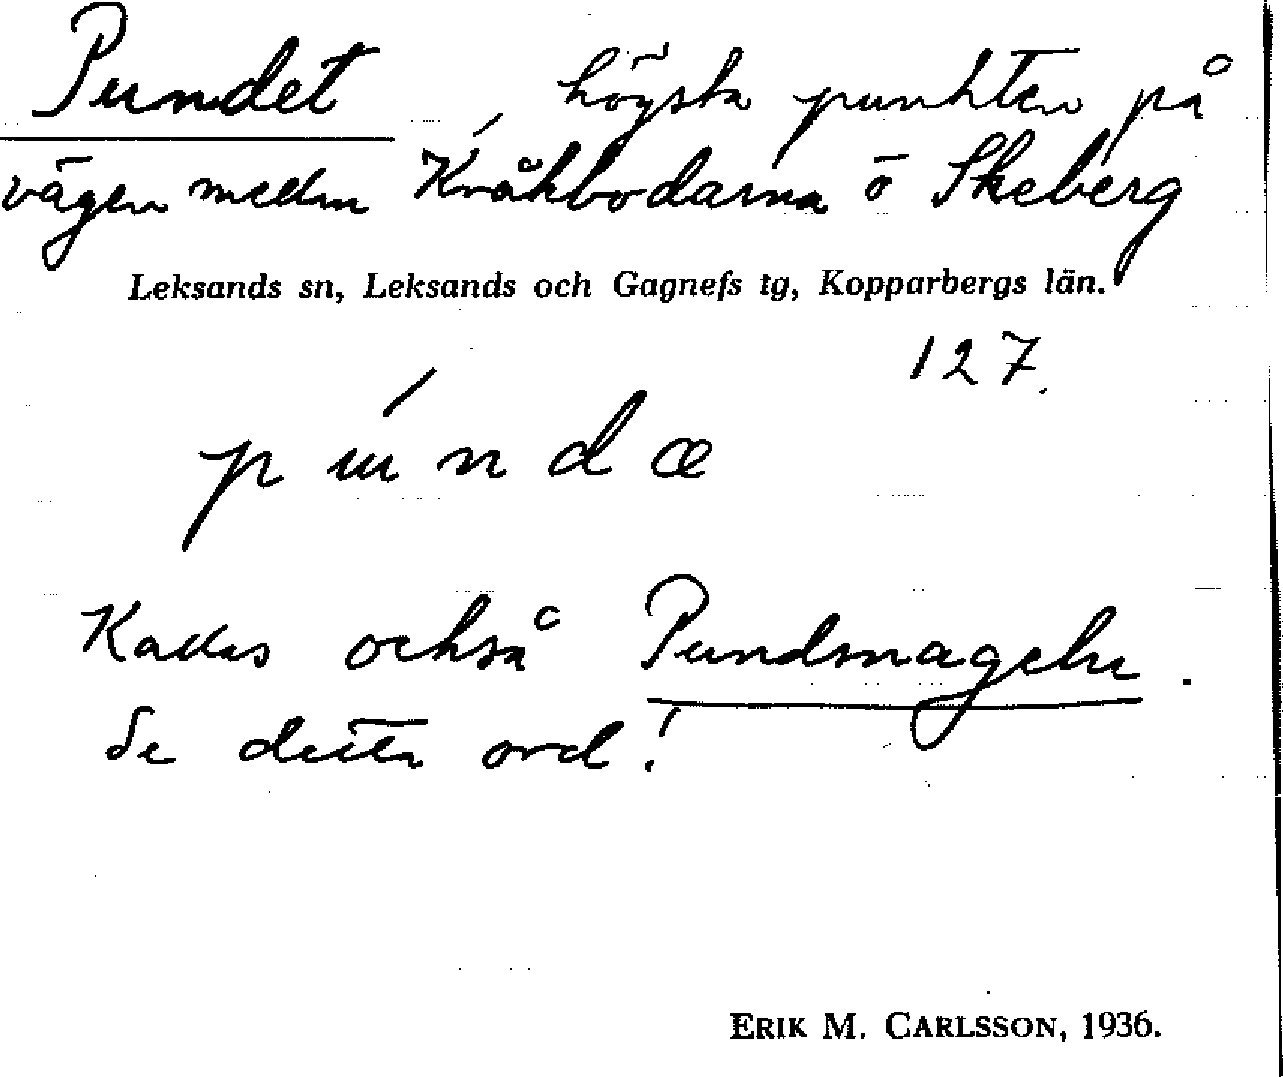 Pundet högsta punkten på
vägen mellan Kråkbodarna o Skeberg
Leksands sn, Leksands och Gagnefs tg, Kopparbergs län.
127.
pundæ
Kallas också Pundsnageln.
Se detta ord!
ERIK M. CARLSSON, 1936.